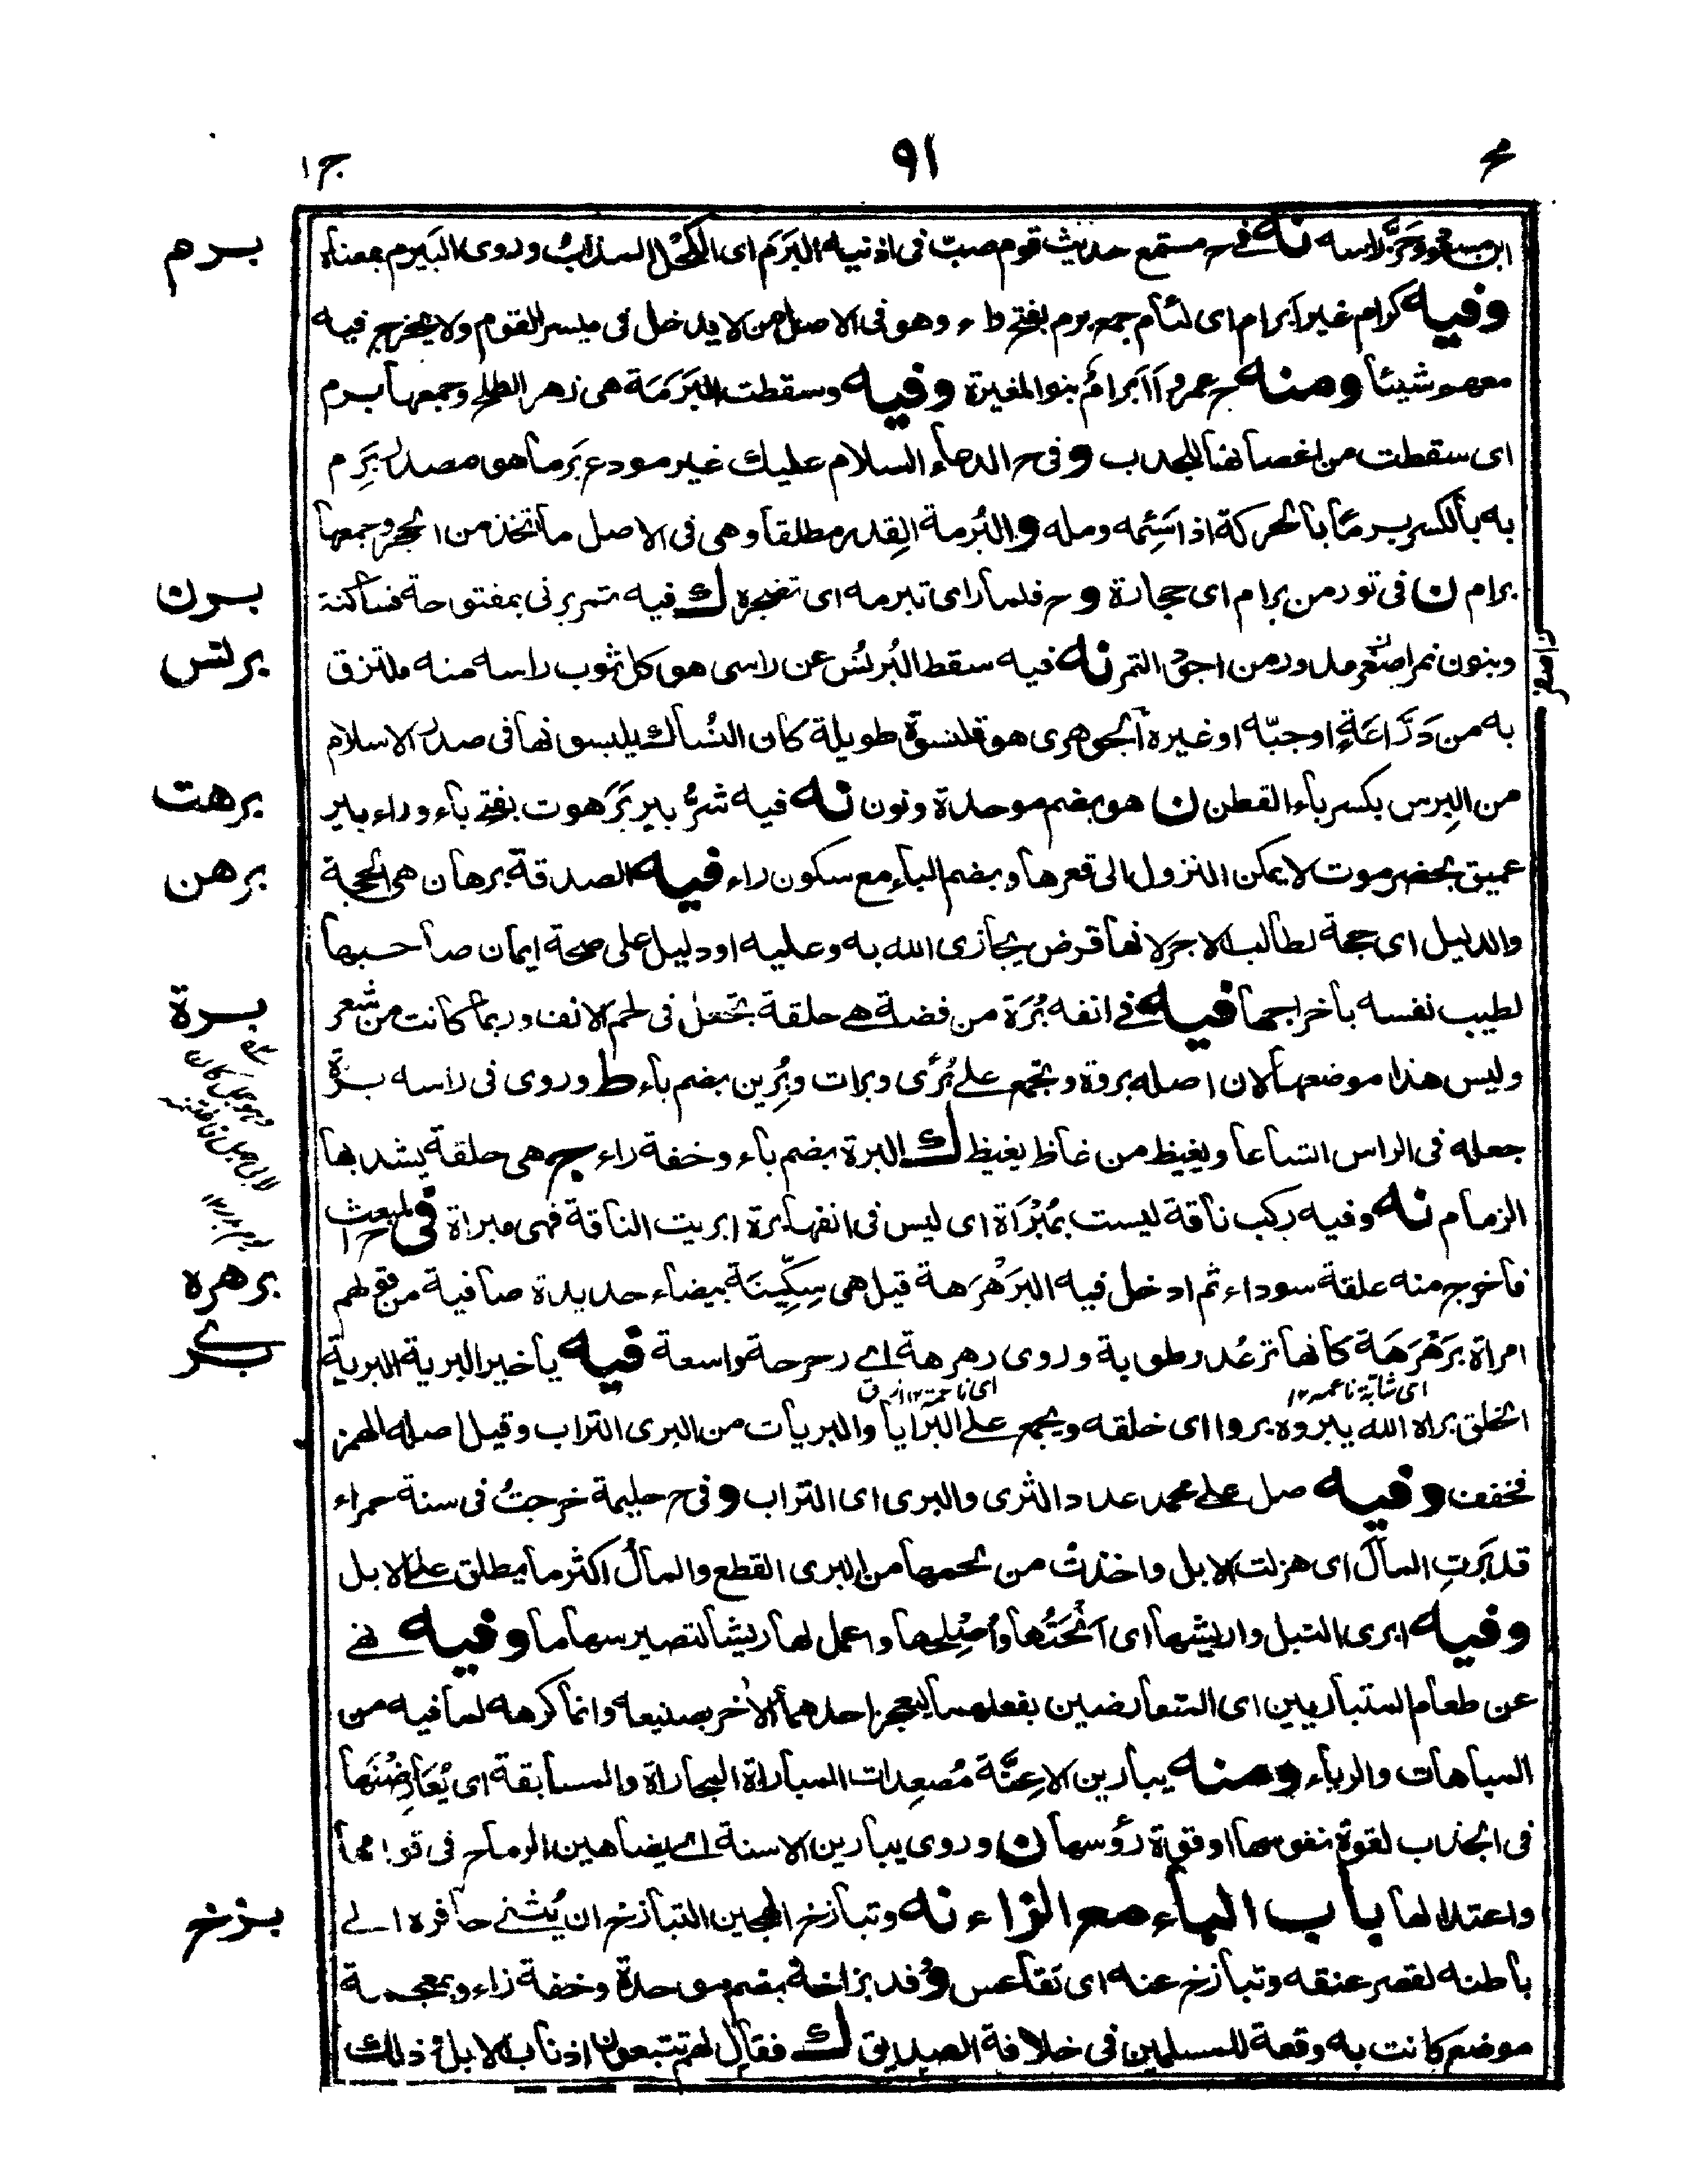 مج
٩١
ج ١
ابن مسعود وحَزّ راسه نه فى ح مستمع حديث قوم صبّ فى اذنيه البَرَم اى الكُحل المذاب وروى البَيرم بمعناه
برم
وفيه كرام غير ابرام اى لئام جمع برم بفتح ط ء وهو فى الاصل من لا يدخل فى ميسر القوم ولا يخرج فيه
معهم شيئا ومنه ح عمرو أأبرامُ بنو المغيرة وفيه وسقطت البَرَمَة هى زهر الطلح وجمعها برم
اى سقطت من اغصانها للجدب وفى ح الدعاء السلام عليك غير مودع بَرما هو مصدر بَرِم
به بالكسر يبرم بَرمًا بالحركة اذا سَئِمه ومله والبُرمة القِدر مطلقا وهى فى الاصل ما اتخذ من الحجر وجمعها
برام ن فى تور من برام اى حجارة وح فلما راى تبرمه اى تضجره ك فيه تمر برنى بمفتوحة فساكنة
برن
وبنون تمر اصفر مدور من اجود التمر نه فيه سقط البُرنُس عن راسى هو كل ثوب راسه منه ملتزق
برنس
به من دَرَّاعَةٍ او جبّه او غيره الجوهرى هو قلنسوة طويلة كان النُسّاك يلبسونها فى صدر الاسلام
من البِرس بكسر باء القطن ن هو بضم موحدة ونون نه فيه شرُّ بير بَرَهوت بفتح باء وراء بير
برهت
عميق بحضرموت لا يمكن النزول الى قعرها وبضم الباء مع سكون راء فيه الصدقة برهان هى الحجة
برهن
والدليل اى حجة لطالب الاجر لانها قرض يجازى الله به وعليه او دليل على صحة ايمان صاحبها
لطيب نفسه باخراجها فيه فى انفه بُرَة من فضة هى حلقة تجعل فى لحم الانف وربما كانت من شعر
برة
وليس هذا موضعها لان اصله بروة وتجمع على بُرًى وبرات وبُرِين بضم باء ط وروى فى راسه برة
جعله فى الراس اتساعا ويغيظ من غاظ يغيظ ك البرة بضم باء وخفة راء ج هى حلقة يشد بها
الزمام نه وفيه ركب ناقة ليست بمُبْرَاة اى ليس فى انفها برة ابريت الناقة فهى مبراة فى ح المبعث
فاخرج منه علقة سوداء ثم ادخل فيه البَرَهْرَهة قيل هى سِكِّينَة بيضاء حديدة صافية من قولهم
برهره
امراة بَرَهْرَهَة كانها ترعُد رطوبة وروى رهرهة اى رحرحة واسعة فيه يا خير البرية البرية
برى
اى شابة ناعمة ١٢
الخلق براه الله يبروه بروا اى خلقه ويجمع على البرايا والبريات من البرى التراب وقيل اصله الهمز
فخفف وفيه صل على محمد عدد الثرى والبرى اى التراب وفى ح حليمة خرجتُ فى سنة حمراء
قد بَرَتِ المالَ اى هزلت الابل واخذت من لحمها من البرى القطع والمالُ اكثر ما يطلق على الابل
وفيه ابرى النبل واريشها اى انْحَتُها وأُصْلِحها واعمل لها ريشا لتصير سهاما وفيه نهى
عن طعام المتباريين اى المتعارضين بفعلهما ليعجز احدهما الآخر بصنيعه وانما كرهه لما فيه من
المباهات والرياء ومنه يبارين الاعِنَّة مُصعِدات المباراة المجاراة والمسابقة اى يُعَارِضْنَها
فى الجذب لقوة نفوسها او قوة رؤسها ن وروى يبارين الاسنة اى يضاهين الرماح فى قوامها
واعتدالها باب الباء مع الزاء نه وتبازخ الهجين التبازخ ان يُثنى حافره الى
بزخ
باطنه لقصر عنقه وتبازخ عنه اى تقاعس وفد بزاخة بضم موحدة وخفة زاء وبمعجمة
موضع كانت به وقعة للمسلمين فى خلافة الصديق ك فقال لهم تتبعون اذناب الابل ذلك